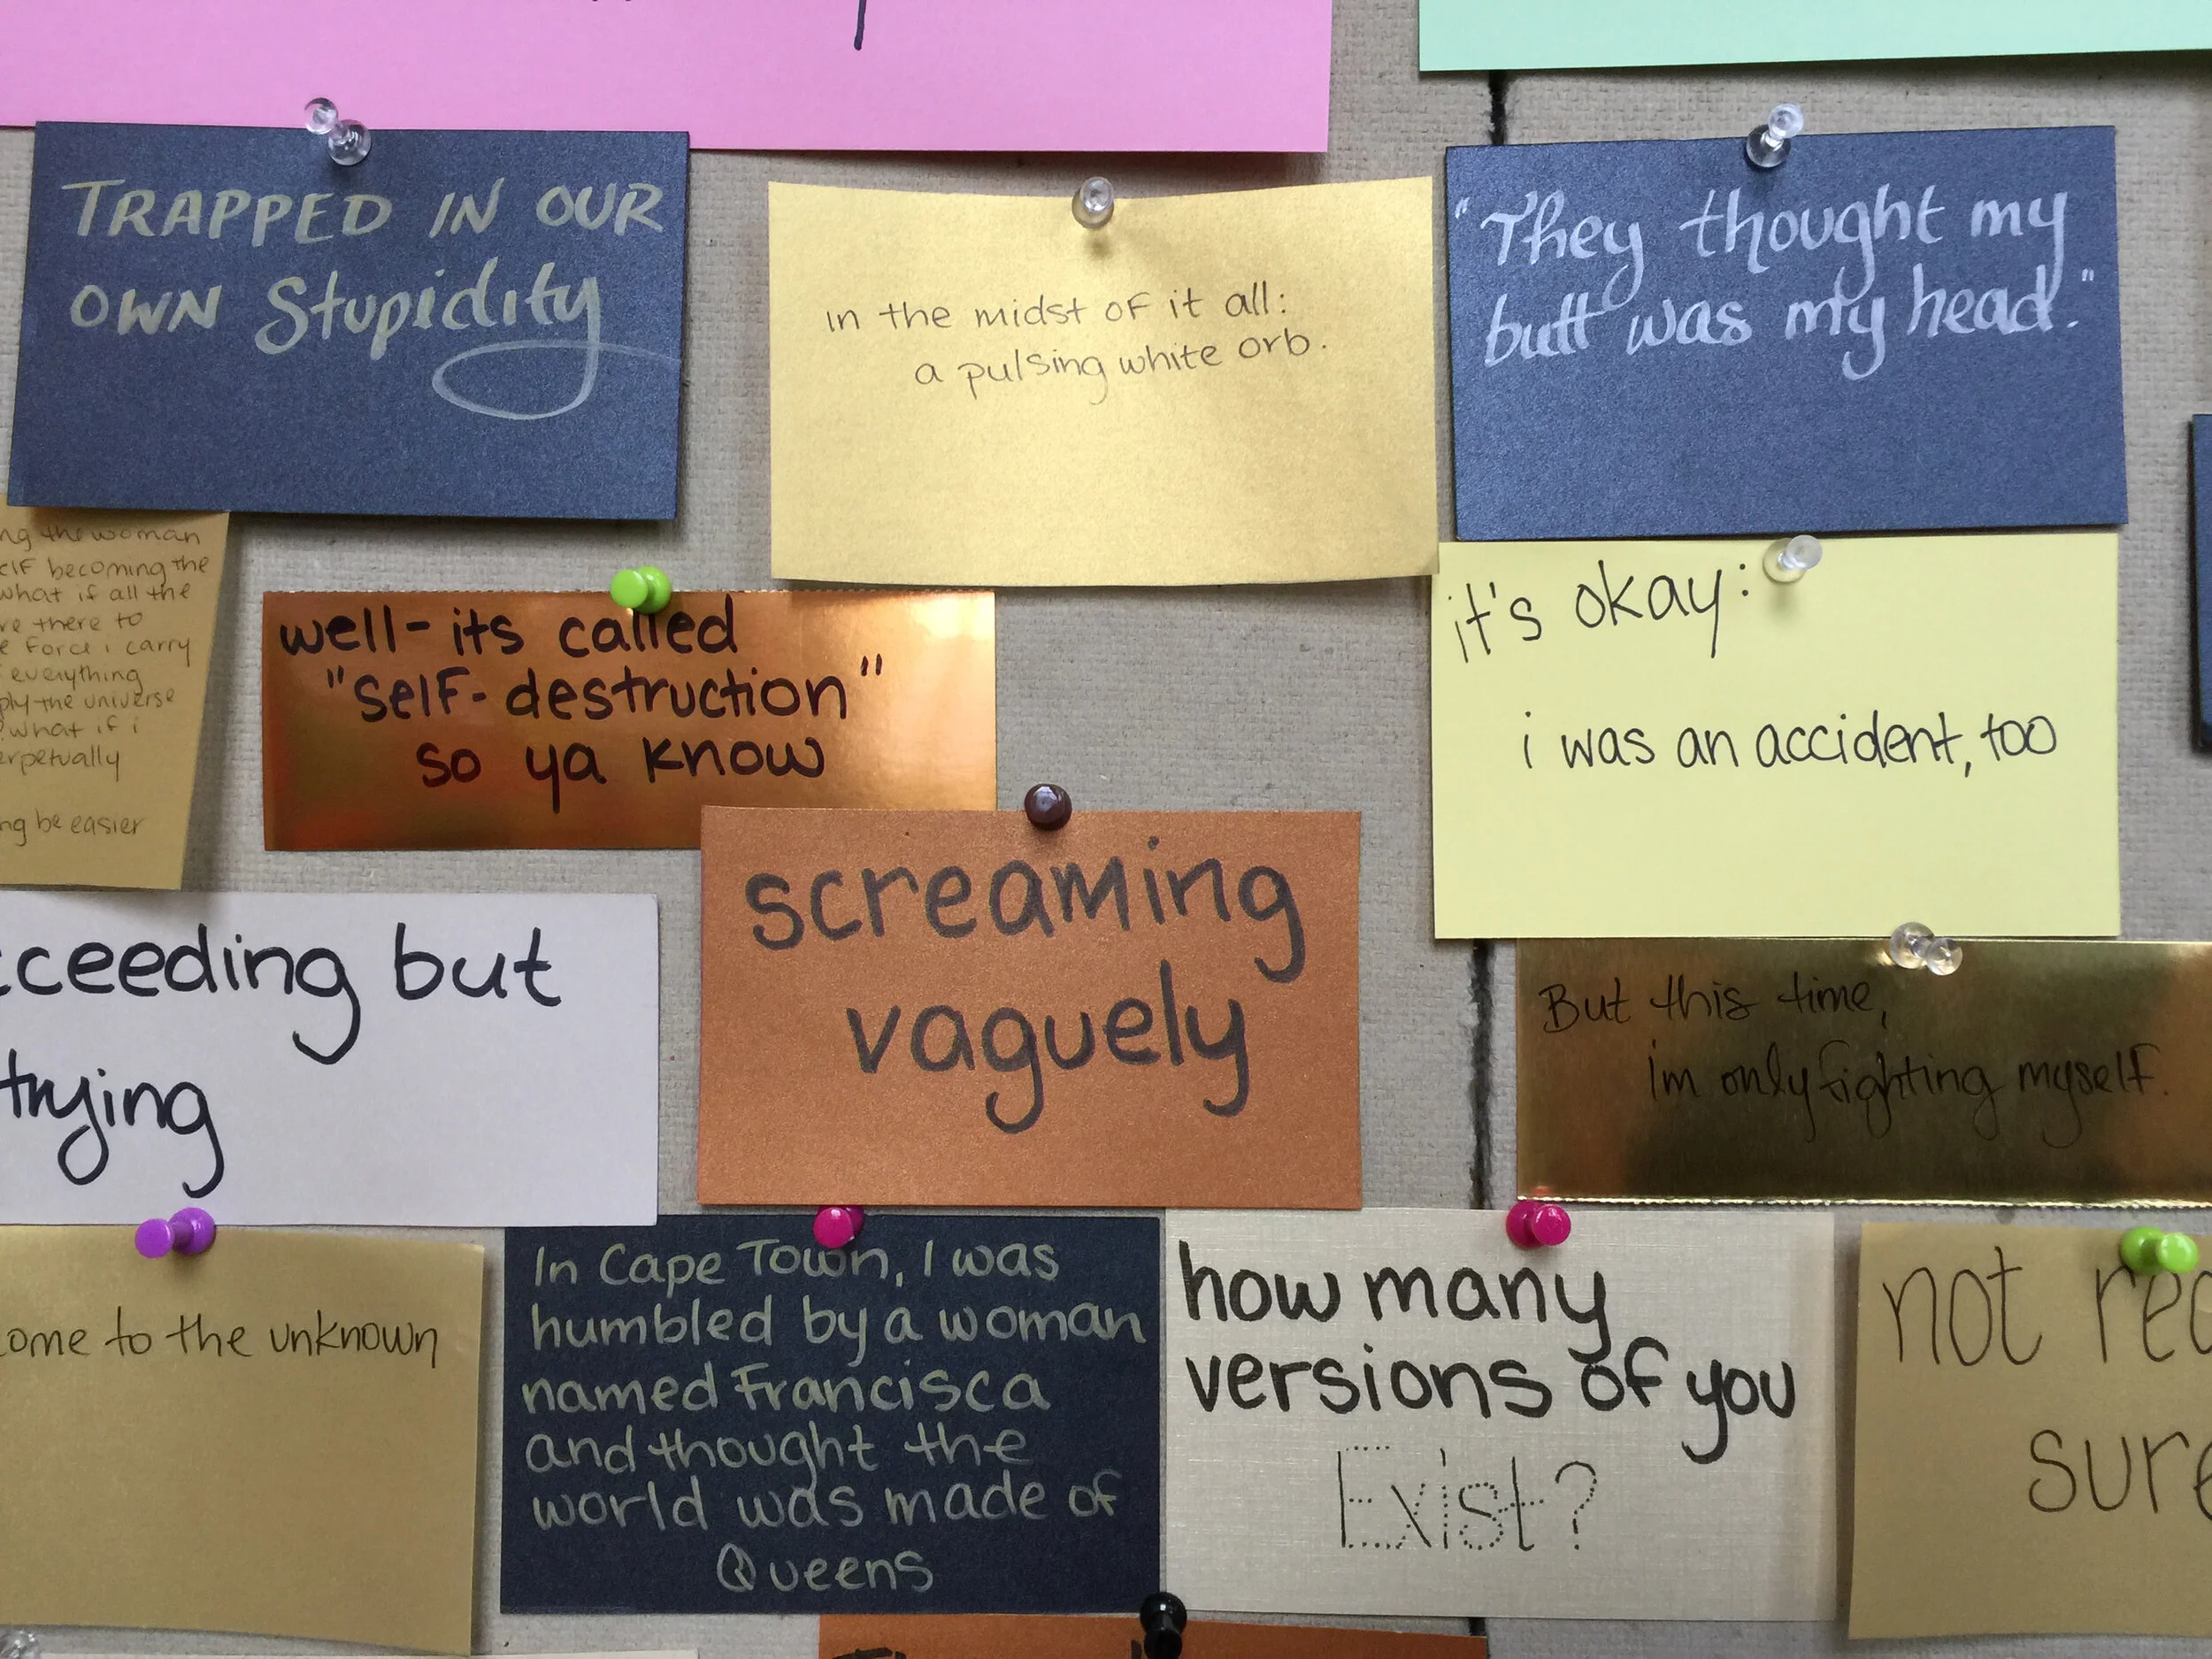 TRAPPED IN OUR
OWN Stupidity
in the midst of it all:
a pulsing white orb.
"They thought my
butt was my head."
the woman
becoming the
what if all the
there to
force i carry
everything
the universe
what if i
be easier
well- its called
"self-destruction"
so ya know
it's okay:
i was an accident, too
but
trying
screaming
vaguely
But this time,
im only fighting myself.
to the unknown
In Cape Town, I was
humbled by a woman
named Francisca
and thought the
world was made of
Queens
how many
versions of you
Exist?
not